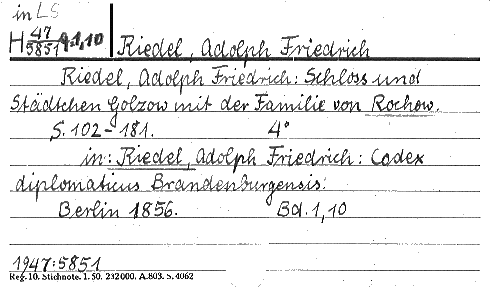 in LS
H 47/5851 9.1,10 Riedel, Adolph Friedrich
Riedel, Adolph Friedrich: Schloss und
Städtchen Golzow mit der Familie von Rochow.
S. 102-181. 4°
in: Riedel, Adolph Friedrich: Codex
diplomaticus Brandenburgensis:
Berlin 1856. Bd. 1,10
1947:5851
Reg. 10. Stichnote. 1. 50. 232000. A.803. S. 4062